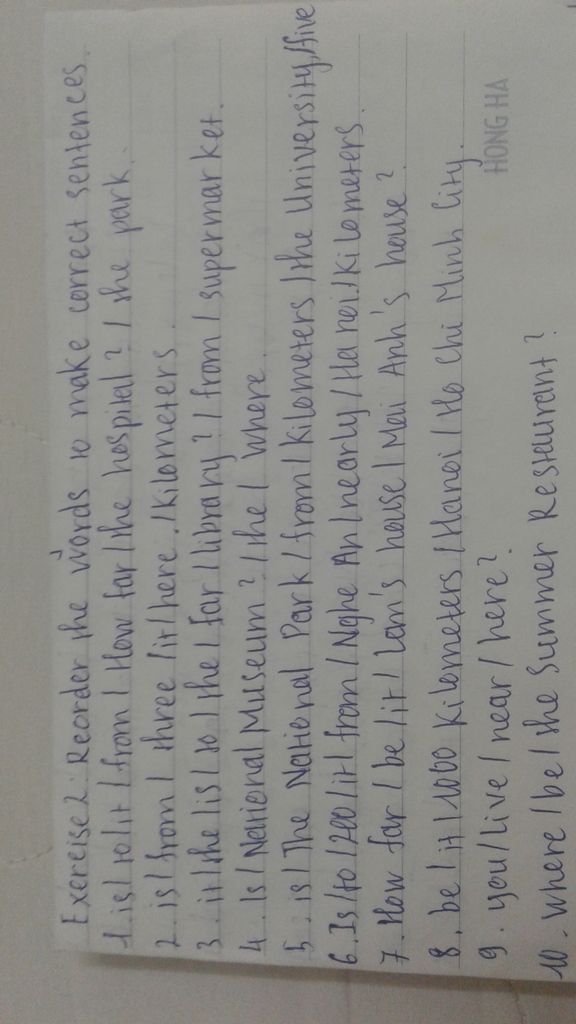 Exercise 2: Reorder the words to make correct sentences.
1. is/ to/it / from / How far / the hospital? / the park.
2. is / from / three / it / here. /kilometers.
3. it / the / is / to / the / far / library? / from / supermarket.
4. Is / National Museum? / the / Where.
5. is / The National Park / from / kilometers / the University,/five
6. Is /to / 200 /it / from / Nghe An / nearly / Ha noi. / kilometers.
7. How far / be / it / Lan's house / Mai Anh's house?
8. be / it / 1000 kilometers / Hanoi / Ho Chi Minh City.
9. you / live / near / here?
10. where / be / the Summer Restaurant?
HONG HA